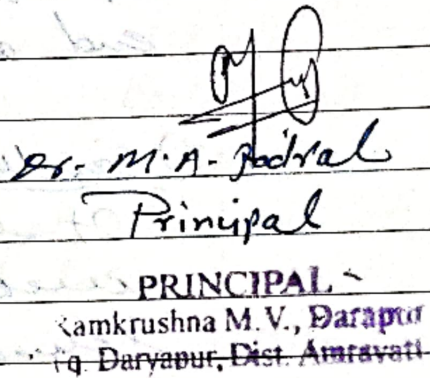 Dr. M. A.
Principal
PRINCIPAL
amkrushna M.V., Darapur
q. Daryapur, Dist. Amravati